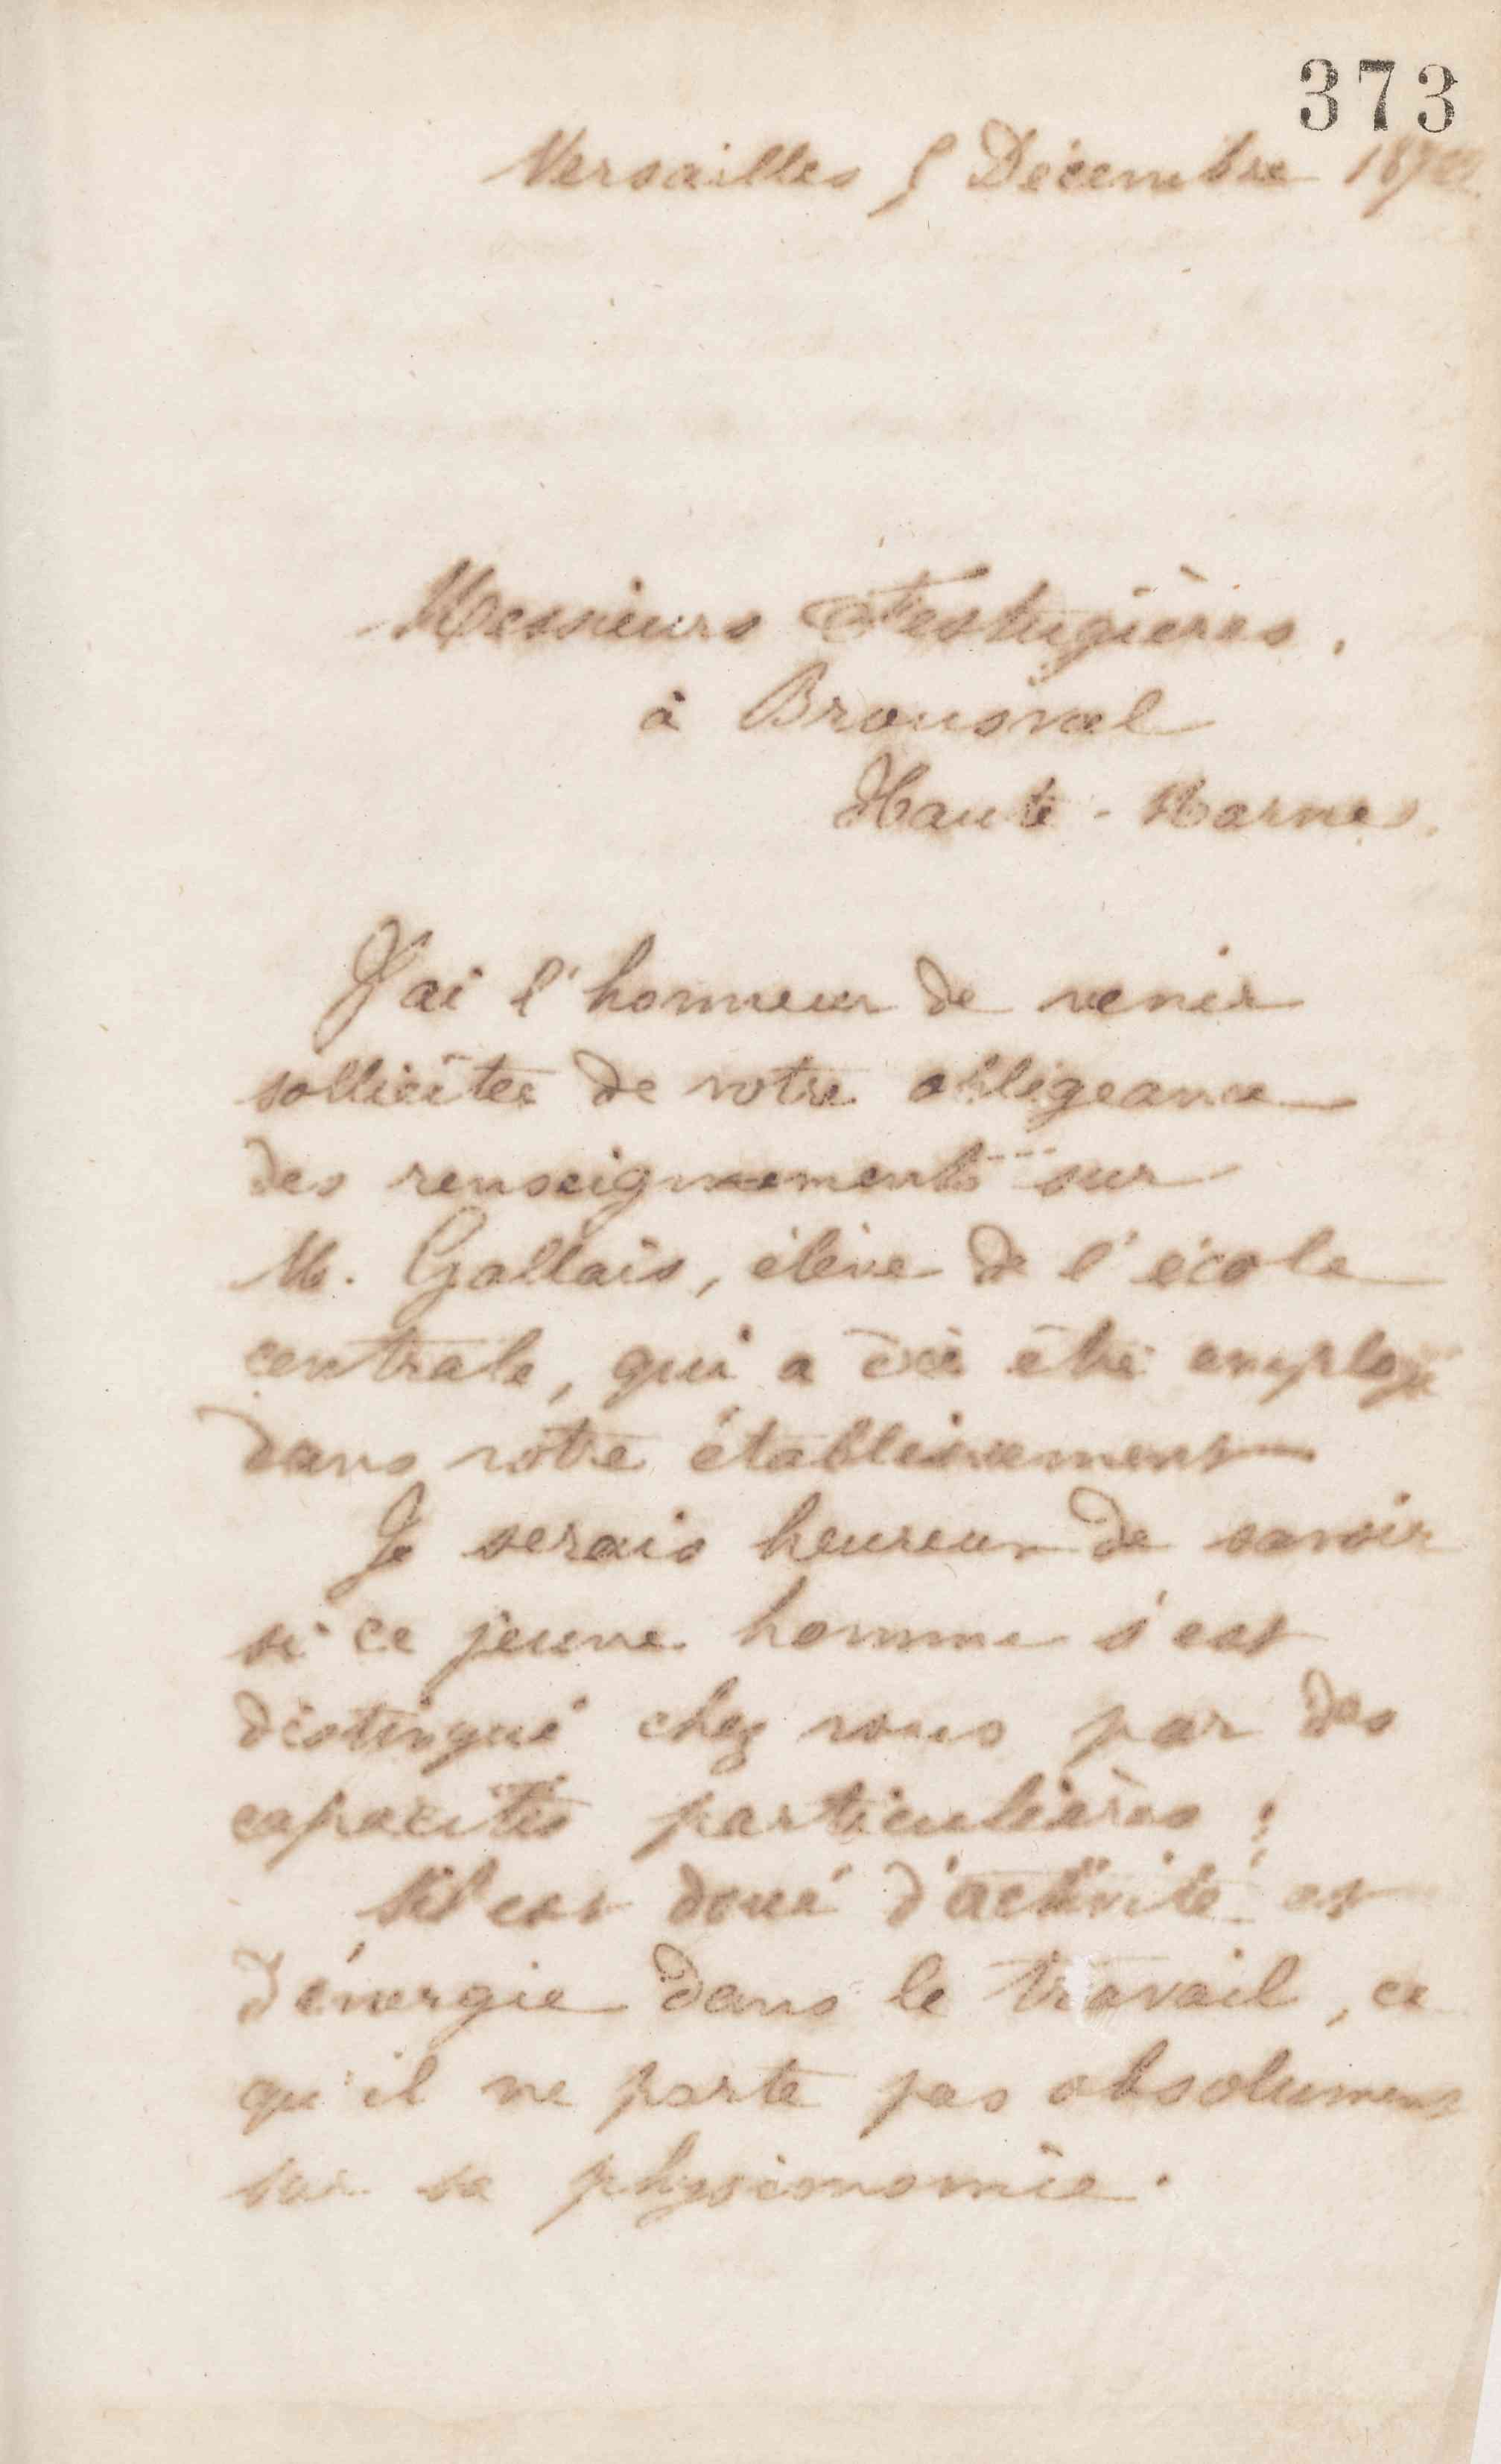 373
Versailles 5 Décembre
Messieurs Festugières,
à Brousval
Haute-Marne.
J'ai l'honneur de venir
solliciter de votre obligeance
des renseignements sur
M. Gallais, élève de l'école
centrale, qui a dû être employé
dans votre établissement
Je serais heureux de savoir
si ce jeune homme s'est
distingué chez vous par des
capacités particulières ;
S'il est doué d'activité et
d'énergie dans le travail, ce
qu'il ne porte pas absolument
sur sa physionomie.